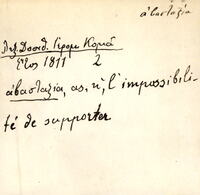 ἀβασταξία
Λεξ. Δοσιθ. Γερομ. Κομᾶ
Ἔτος 1811 2
ἀβασταξία, ας, ἡ, l'impossibili-
té de supporter